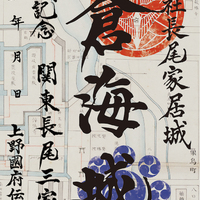 社長尾家居城
蒼海城
記念
関東長尾三家
年 月 日
上野國府伝